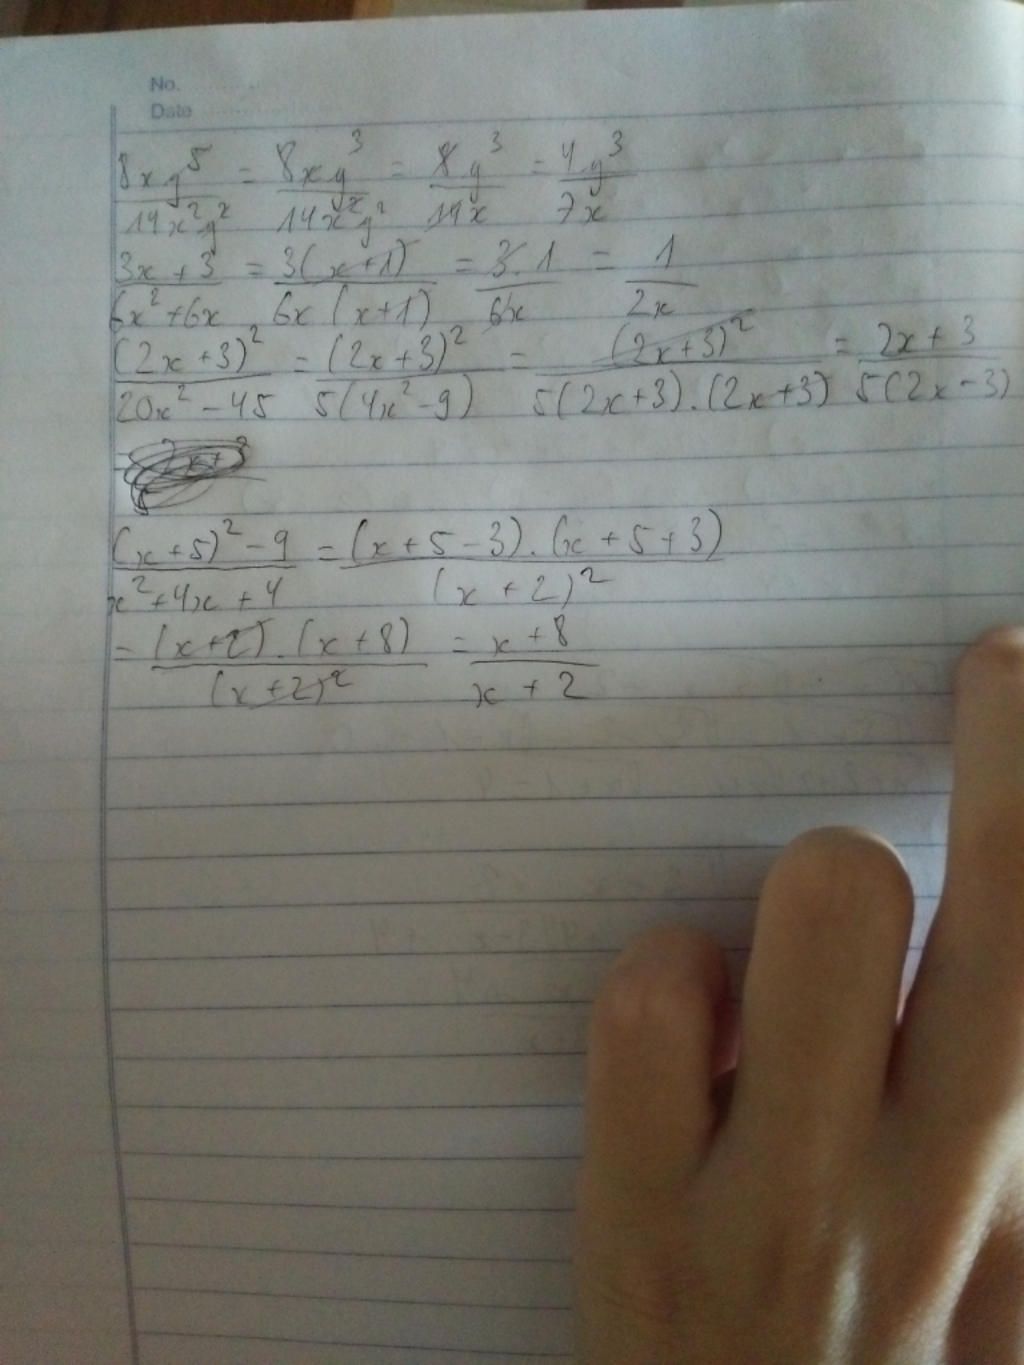 No.
Date
8xy⁵/14x²y² = 8xy³/14x²y² = 8y³/14x = 4y³/7x
3x + 3/6x² + 6x = 3(x+1)/6x(x+1) = 3.1/6x = 1/2x
(2x+3)²/20x² - 45 = (2x+3)²/5(4x²-9) = (2x+3)²/5(2x+3).(2x+3) = 2x+3/5(2x-3)
(x+5)² - 9/x² + 4x + 4 = (x+5-3).(x+5+3)/(x+2)²
= (x+2).(x+8)/(x+2)² = x+8/x+2